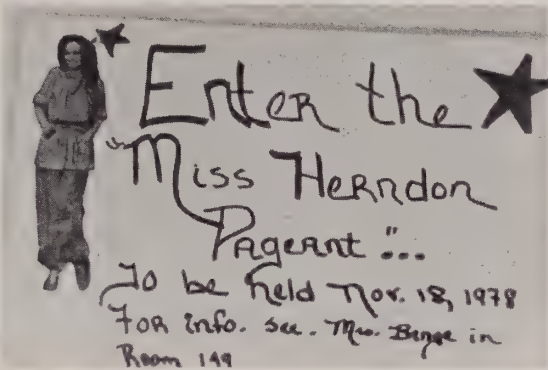 Enter the
"Miss Herndon
Pageant"...
To be held Nov. 18, 1978
For info. see. Mrs. Binge in
Room 149